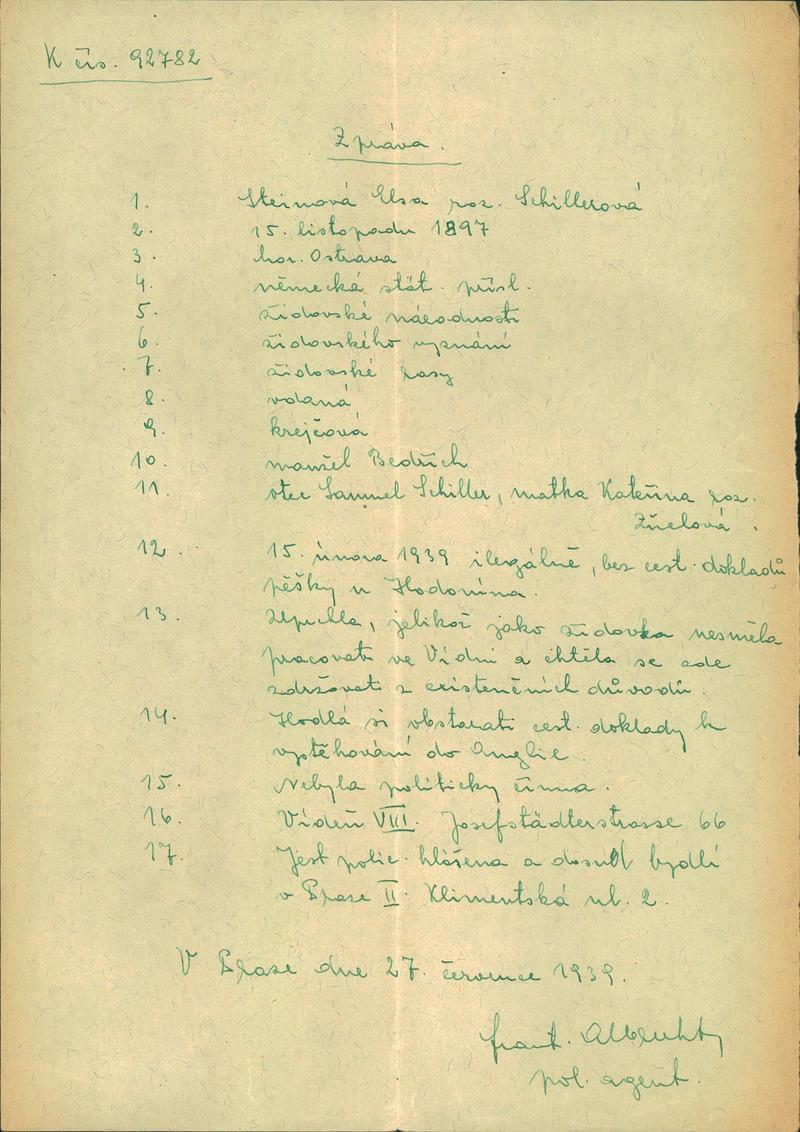 K čís. 92782
Zpráva.
1. Steinová Elsa roz. Schillerová
2. 15. listopadu 1897
3. hor. Ostrava
4. německá stát. přísl.
5. židovské národnosti
6. židovského vyznání
7. židovské rasy
8. vdaná
9. krejčová
10. manžel Bedřich
11. otec Samuel Schiller, matka Kateřina roz.
12. 15. února 1939 ilegálně, bez cest. dokladů
pěšky u Hodonína.
13. Uprchla, jelikož jako židovka nesměla
pracovati ve Vídni a chtěla se zde
zdržovati z existenčních důvodů.
14. Hodlá si obstarati cest. doklady k
vystěhování do Anglie.
15. Nebyla politicky činna.
16. Vídeň VIII. Josefstädterstrasse 66
17. Jest polic. hlášena a dosud bydlí
v Praze II. Klimentská ul. 2.
V Praze dne 27. července 1939.
frant.
pol. agent.